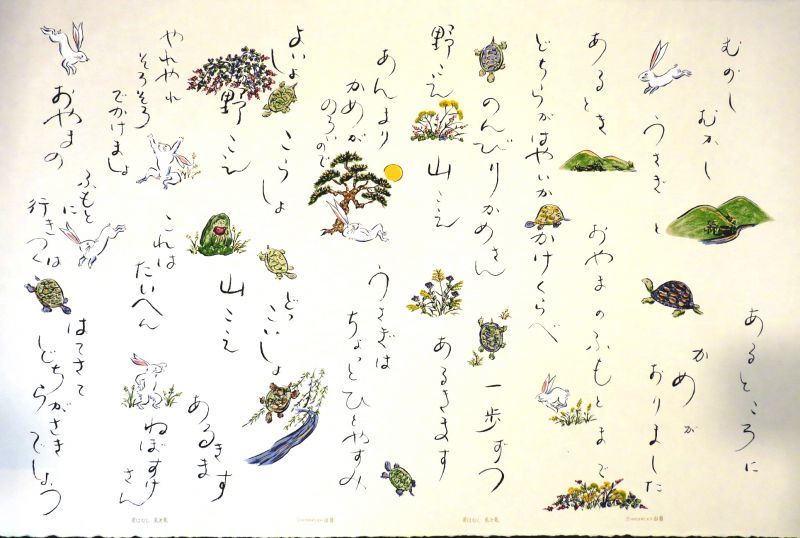 むかし
むかし
あるところに
うさぎと
かめが
おりました
あるとき
おやまのふもとまで
どちらがはやいか
かけくらべ
のんびりかめさん
一歩ずつ
野こえ
山こえ
あるきます
あんまり
かめが
のろいので
うさぎは
ちょっとひとやすみ
よいしょ
こらしょ
どっこいしょ
野こえ
山こえ
あるきます
やれやれ
そろそろ
でかけましょ
これは
たいへん
ねぼすけ
さん
おやまの
ふもとに
行きつくは
はてさて
どちらがさき
でしょう